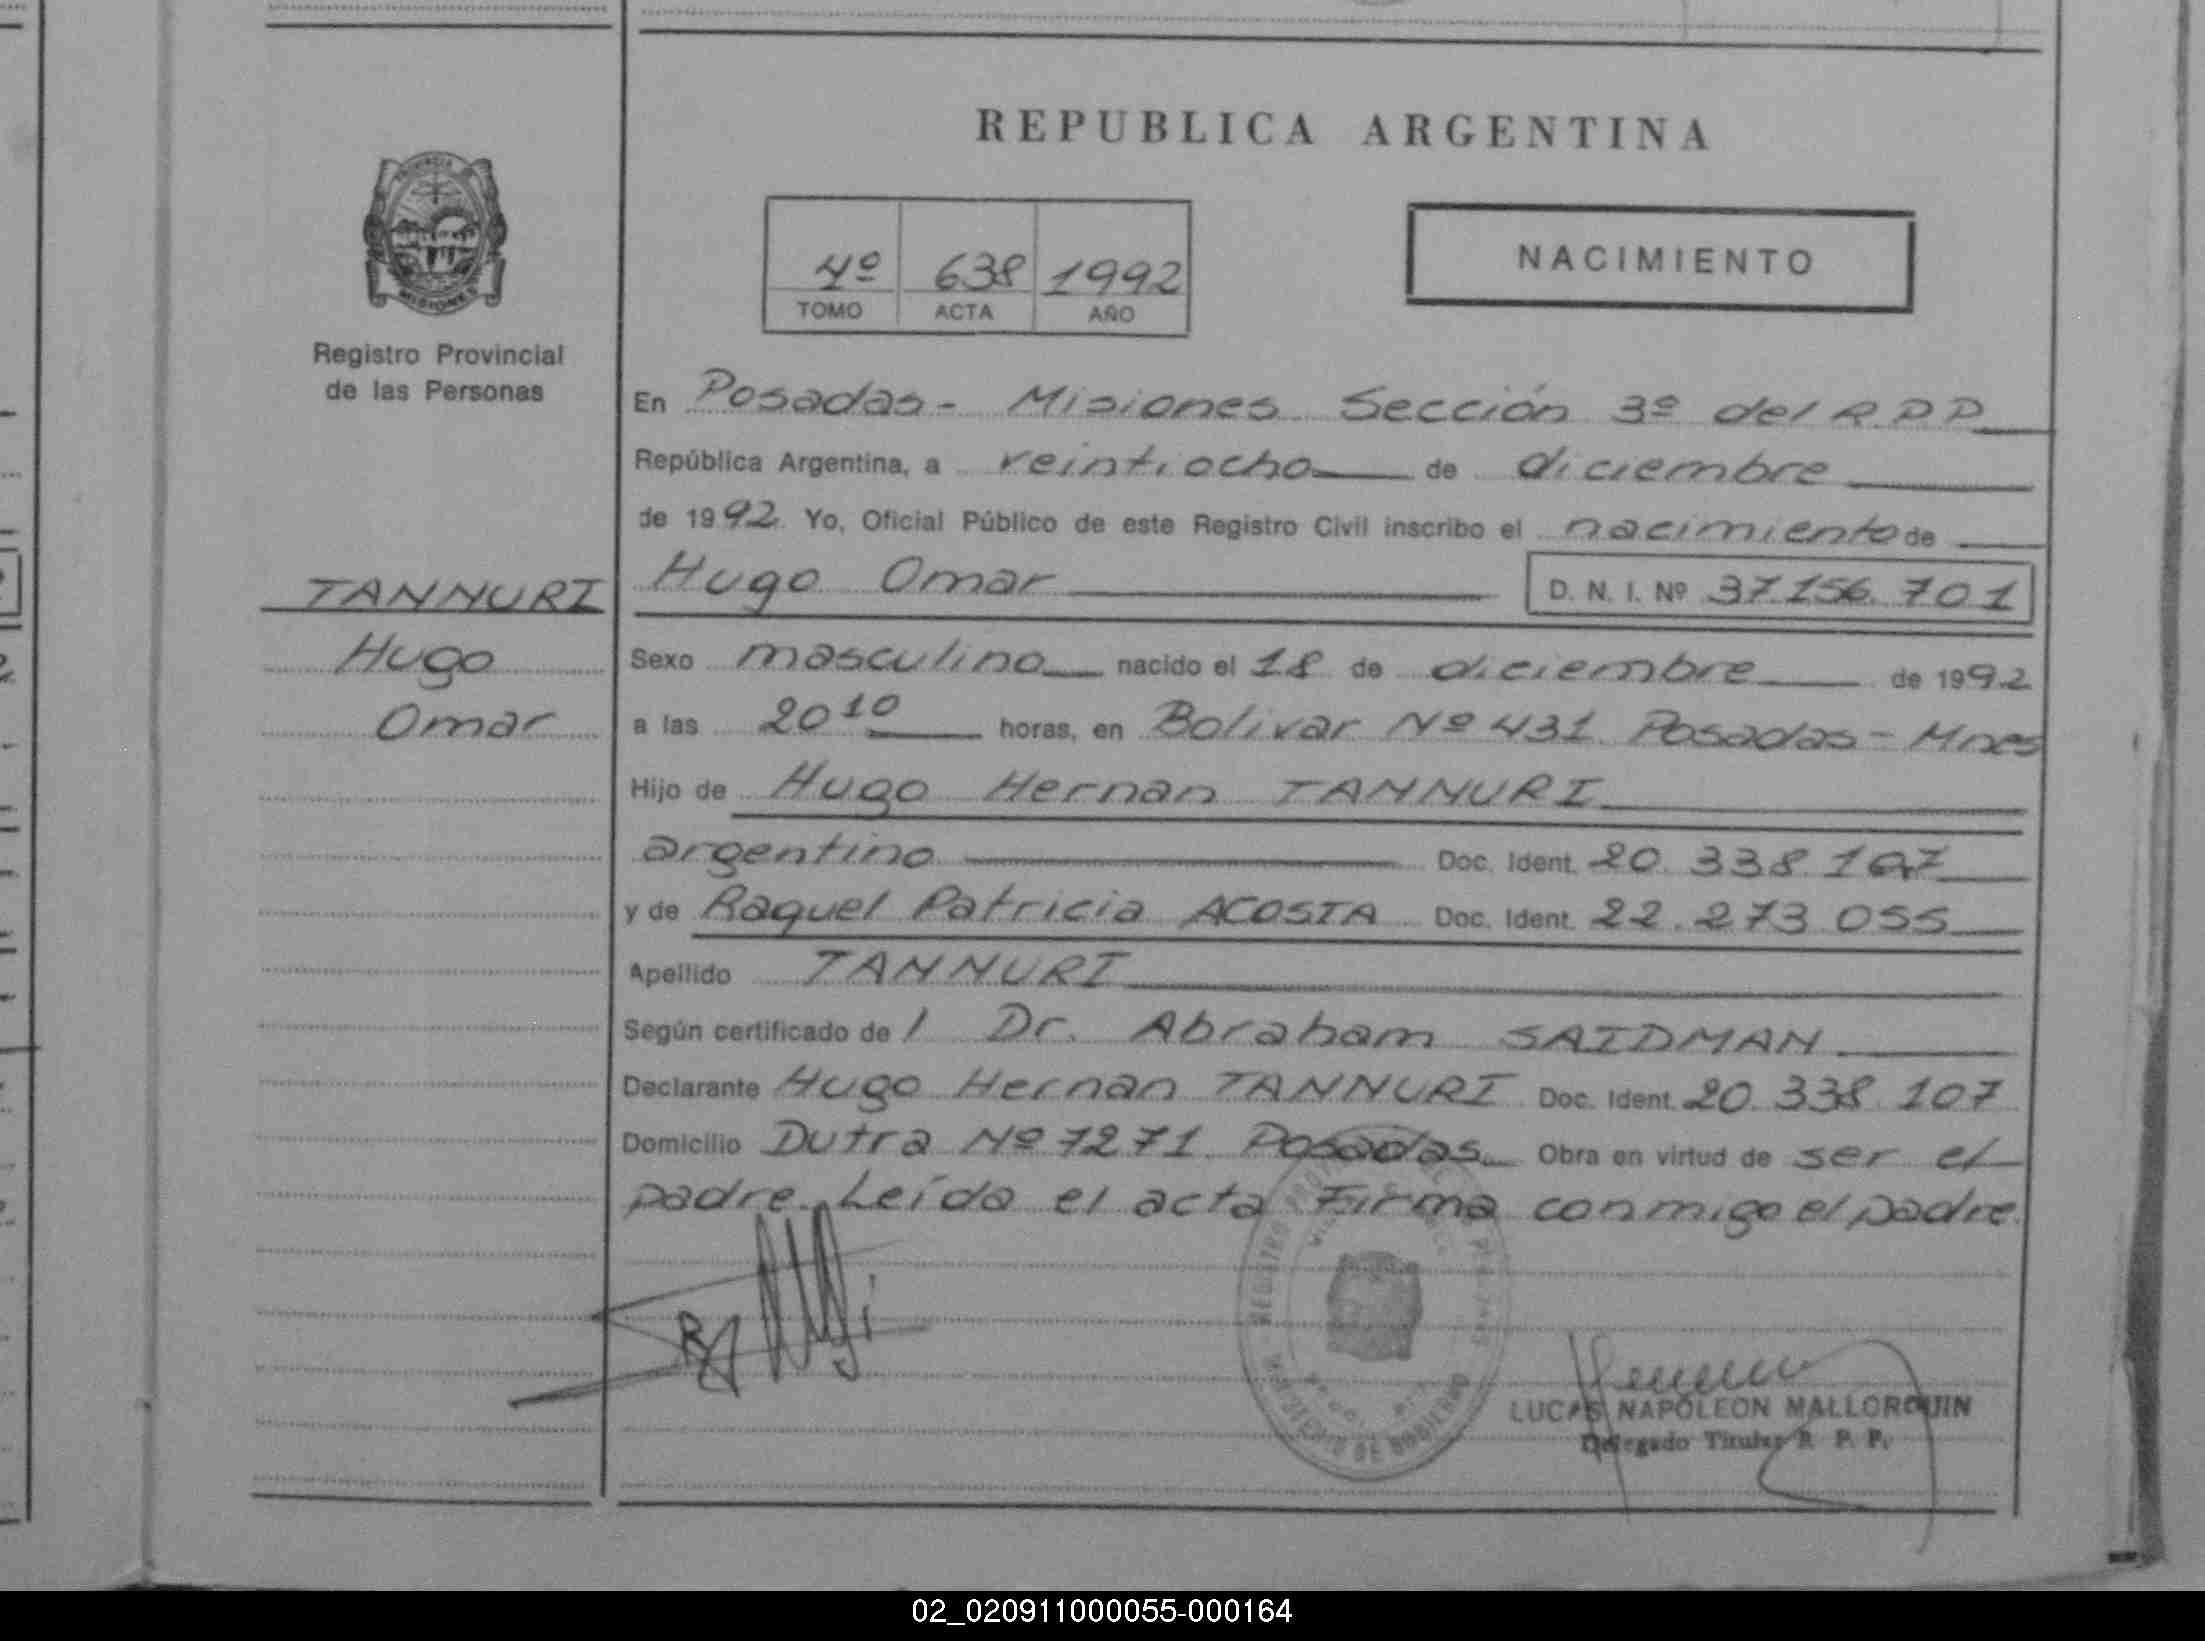 REPUBLICA ARGENTINA
PROVINCIA
MISIONES
Registro Provincial
de las Personas
4º 638 1992
TOMO ACTA AÑO
NACIMIENTO
En Posadas - Misiones Sección 3º del R.P.P.
República Argentina, a veintiocho de diciembre
de 1992. Yo, Oficial Público de este Registro Civil inscribo el nacimiento de
TANNURI
Hugo
Omar
Hugo Omar D. N. I. Nº 37.156.701
Sexo masculino nacido el 18 de diciembre de 1992
a las 20 10 horas, en Bolivar Nº 431 Posadas - Mnes
Hijo de Hugo Hernan TANNURI
argentino Doc. Ident. 20.338.107
y de Raquel Patricia ACOSTA Doc. Ident. 22.273.055
Apellido TANNURI
Según certificado de l Dr. Abraham SAIDMAN
Declarante Hugo Hernan TANNURI Doc. Ident. 20.338.107
Domicilio Dutra Nº 7271 Posadas Obra en virtud de ser el
padre. Leída el acta Firma conmigo el padre.
REGISTRO
MINISTERIO DE GOBIERNO
LUCAS NAPOLEON MALLORQUIN
Delegado Titular R. P. P.
02_020911000055-000164